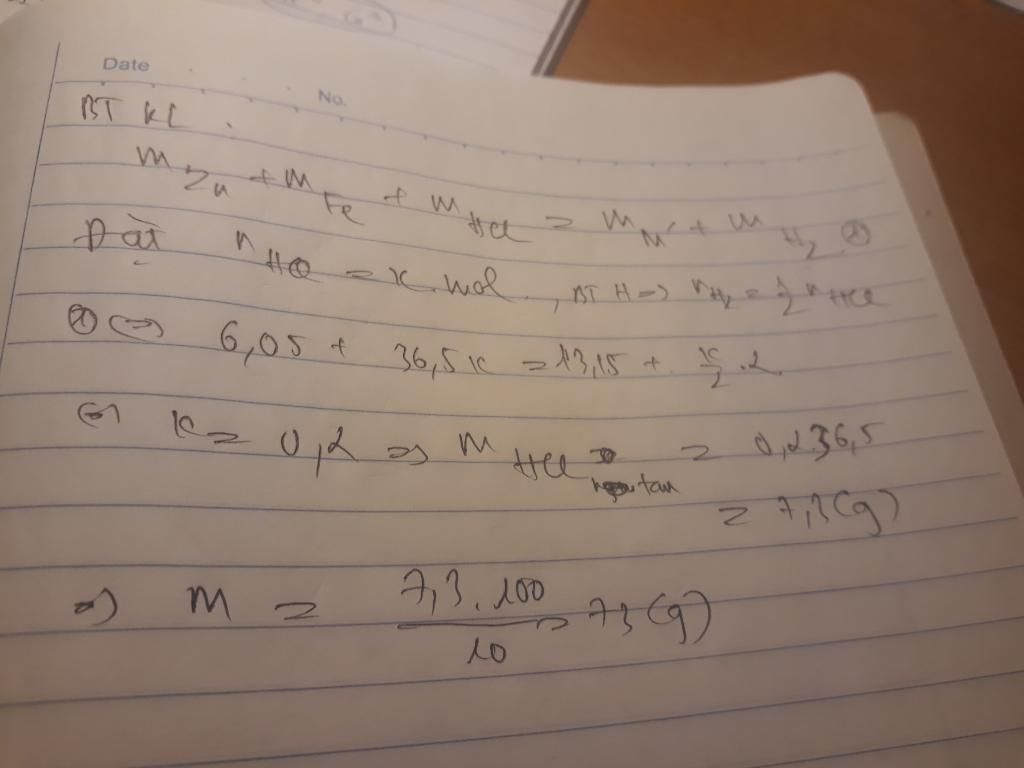 Date
No.
BT KL.
m Zn + m Fe + m HCl = m M' + m H2 (*)
Đặt n HCl = x mol, BT H => n H2 = 1/2 n HCl
(*) <=> 6,05 + 36,5x = 13,15 + x/2 .2
<=> x = 0,2 => m HCl tan = 0,2 36,5
= 7,3(g)
=> m = 7,3.100/10 = 73(g)